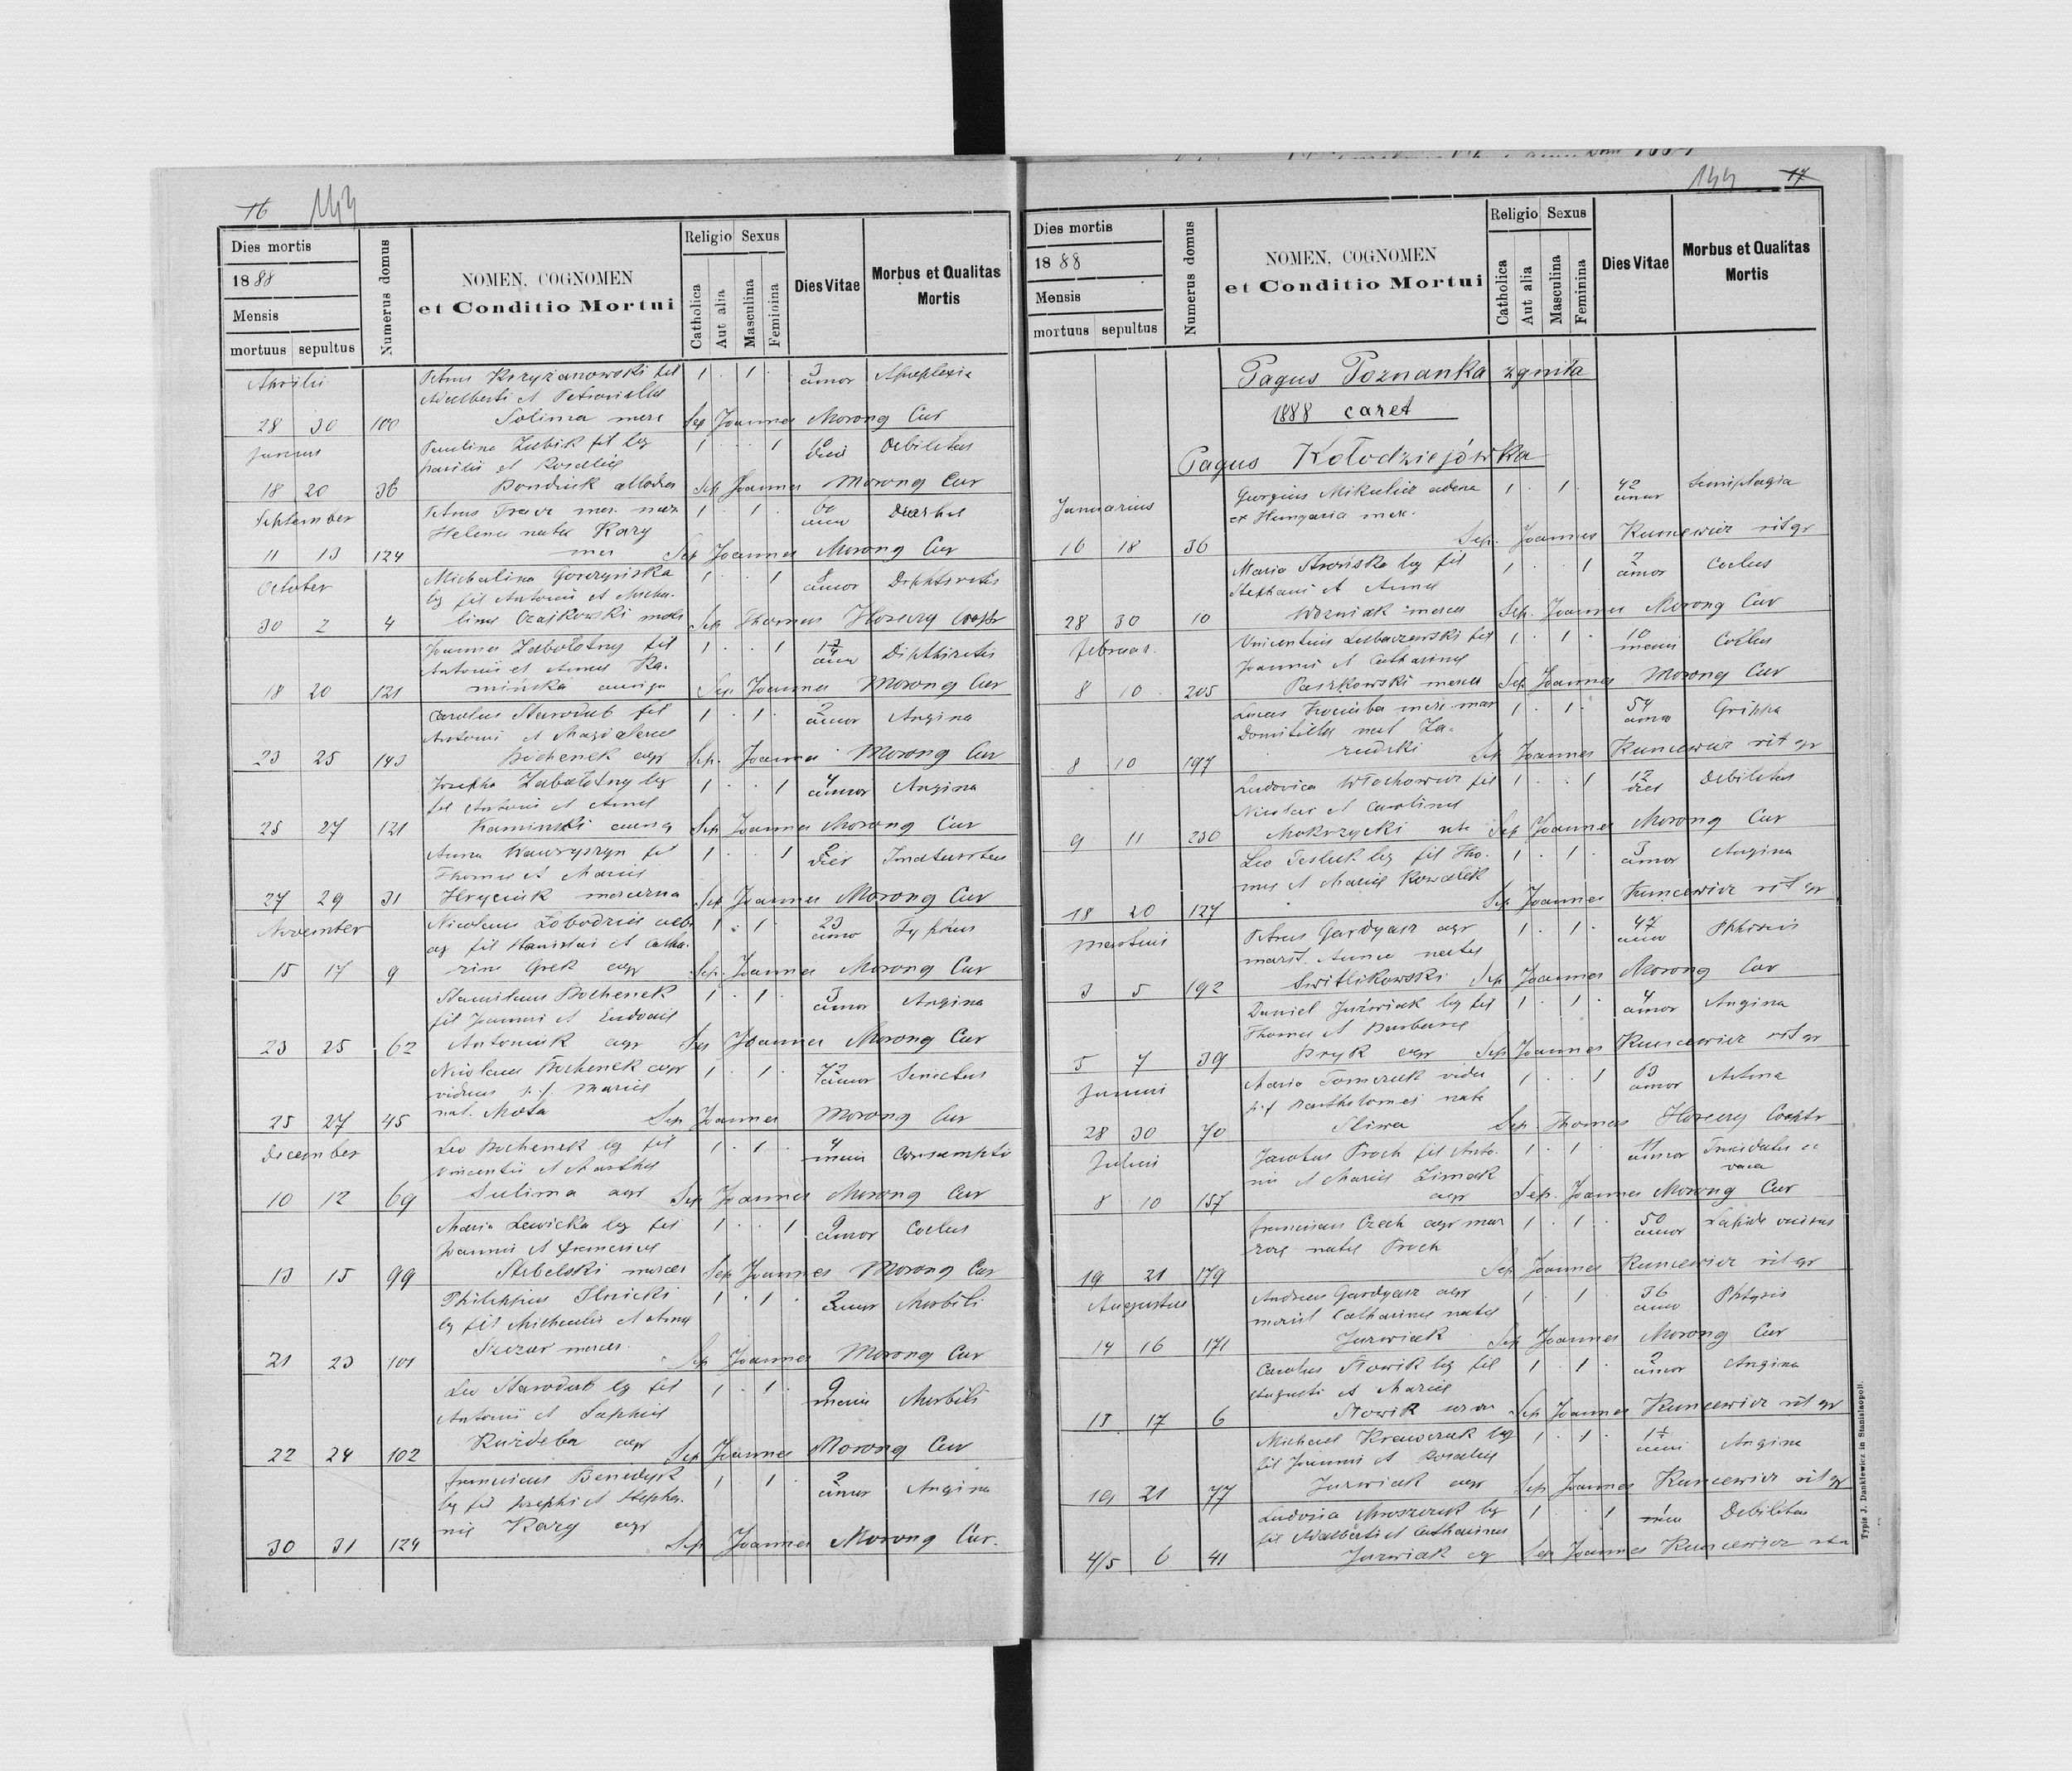 16 143
Dies mortis
1888
Mensis
mortuus sepultus
Numerus domus
NOMEN, COGNOMEN
et Conditio Mortui
Religio Sexus
Catholica
Aut alia
Masculina
Feminina
Dies Vitae
Morbus et Qualitas
Mortis
Aprilis
Petrus Krzyżanowski fil 1 · 1 · 3 annor Apoplexia
Adalberti et Petronellae
28 30 100 Solima merc Sep Joannes Morong Cur
Junius
Paulina Zubik fil leg 1 · · 1 10 dies Debilitas
et Rosaliae
18 20 36 Sep Joannes Morong Cur
September
Petrus mer. mar 1 · 1 · Diarhea
Helenae natae Kozy
11 13 124 mer Sep Joannes Morong Cur
October
Michalina Gorczyńska 1 · · 1 annor Diphteritis
leg fil Antonii et Micha-
30 2 4 linae Czajkowski Sep Thomas Coop
Joannes Zabolotny fil 1 · · 1 Diphthiritis
Antonii et Annae Ka-
18 20 121 mińska auriga Sep Joannes Morong Cur
Carolus Starodub fil 1 · 1 · 2 annor Angina
Antonii et Magdalenae
23 25 143 Bochenek agr Sep. Joannes Morong Cur
Josepha Zabolotny leg 1 · · 1 4 annor Angina
fil Antonii et Annae
25 27 121 Kaminski Sep Joannes Morong Cur
Anna Wawryszyn fil 1 · · 1 2 dies
Thomae et Mariae
27 29 31 Hryciuk Sep Joannes Morong Cur
November
Nicolaus 1 · 1 · 23 anno Typhus
ag fil Stanislai et Catha-
15 17 9 rinae Grek agr Sep. Joannes Morong Cur
Stanislaus Bochenek 1 · 1 · 3 annor Angina
fil Joannis et Eudociae
23 25 62 Antoniuk agr Sep Joannes Morong Cur
Nicolaus Bochenek agr 1 · 1 · 72 annor Senectus
viduus p. f. Mariae
25 27 45 nat. Mota Sep Joannes Morong Cur
December
Leo Bochenek leg fil 1 · 1 · 4 Consumptio
Vincentii et Marthae
10 12 69 Sulima agr Sep Joannes Morong Cur
Maria Lewicka leg fil 1 · · 1 2 annor Coelus
Joannis et Franciscae
13 15 99 Stebelski merces Sep Joannes Morong Cur
Philippus Ilnicki 1 · 1 · 2 annor Morbili
leg fil Michaelis et Annae
21 23 101 merces. Sep Joannes Morong Cur
Leo Starodub leg fil 1 · 1 · 9 Morbili
Antonii et Sophiae
22 24 102 Kuźdeba agr Sep Joannes Morong Cur
Franciscus Benedyk 1 · 1 · 2 annor Angina
leg fil Josephi et Stepha-
30 31 124 niae Kozy agr Sep Joannes Morong Cur.
144 17
Dies mortis
1888
Mensis
mortuus sepultus
Numerus domus
NOMEN, COGNOMEN
et Conditio Mortui
Religio Sexus
Catholica
Aut alia
Masculina
Feminina
Dies Vitae
Morbus et Qualitas
Mortis
Pagus Poznanka zgniła
1888 caret
Pagus Kołodziejówka
Januarius
Georgius Mikulicz 1 · 1 · 42 annor Semiplagia
ex Hungaria merc.
16 18 36 Sep. Joannes Kuncewicz rit gr
Maria leg fil 1 · · 1 2 annor Coelus
Stephani et Annae
28 30 10 Woźniak merces Sep. Joannes Morong Cur
Februar.
Vincentius Lubaczewski fil 1 · 1 · 10 mensis Coelus
Joannis et Catharinae
8 10 205 Paszkowski merces Sep Joannes Morong Cur
Lucas merc mar 1 · 1 · 54 anno Grippa
Domitillae nat Za-
8 10 197 rudzki Sep Joannes Kuncewicz rit gr
Ludovica Włochowicz fil 1 · · 1 12 dies Debilitas
Nicolai et Carolinae
9 11 230 Mokrzycki Sep Joannes Morong Cur
Leo Tesluk leg fil Tho- 1 · 1 · 3 annor Angina
mae et Mariae Kowalek
18 20 127 Sep Joannes Kuncewicz rit gr
Martius
Petrus Gardyasz agr 1 · 1 · 47 anno Phthisis
marit. Annae natae
3 5 192 Switlikowski Sep Joannes Morong Cur
Daniel Jurwiak leg fil 1 · 1 · 4 annor Angina
Thomae et Barbarae
5 7 39 Bryk agr Sep Joannes Kuncewicz rit gr
Junius
Maria Tomczuk vidu 1 · · 1 63 annor Astma
p. f Bartholomei nata
28 30 70 Sliwa Sep. Thomas
Julius
Jacobus Proch fil Anto- 1 · 1 · 11 annor
nii et Mariae Zimak
8 10 157 agr Sep. Joannes Morong Cur
Franciscus Czech agr mar 1 · 1 · 50 annor Lapide occisus
natae Proch
19 21 179 Sep Joannes Kuncewicz rit gr
Augustus
Andreas Gardyasz agr 1 · 1 · 36 anno Phtysis
marit Catharinae natae
14 16 171 Jurwiak Sep Joannes Morong Cur
Carolus Nowik leg fil 1 · 1 · 2 annor Angina
Augusti et Mariae
15 17 6 Nowik Sep Joannes Kuncewicz rit gr
Michael Krawczuk leg 1 · 1 · Angina
fil Joannis et Rosaliae
19 21 77 Jurwiak agr Sep Joannes Kuncewicz rit gr
Ludovica Mroszczuk leg 1 · · 1 Debilitas
fil Adalberti et Catharinae
4/5 6 41 Jurwiak ag Sep Joannes Kuncewicz
Typis J. Dankiewicz in Stanislaopoli.